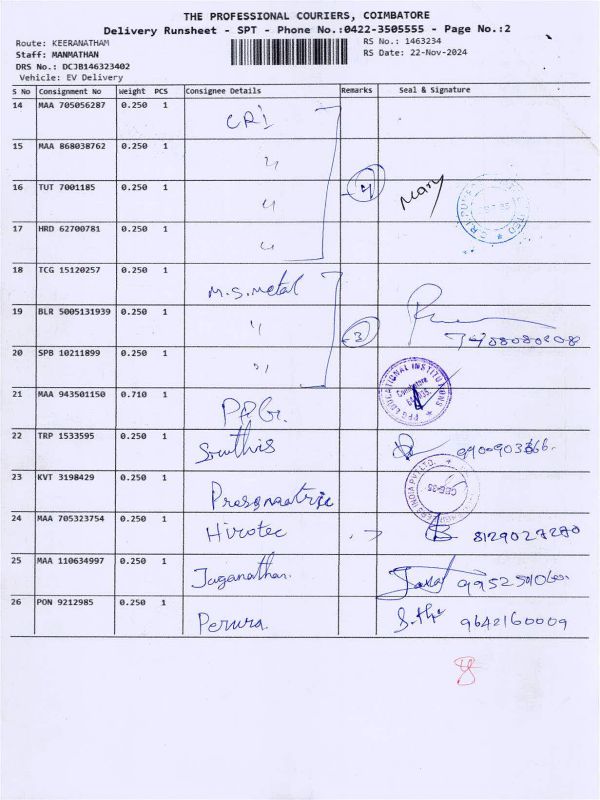 THE PROFESSIONAL COURIERS, COIMBATORE
Delivery Runsheet - SPT - Phone No.:0422-3505555 - Page No.:2
Route: KEERANATHAM RS No.: 1463234
Staff: MANMATHAN RS Date: 22-Nov-2024
DRS No.: DCJB146323402
Vehicle: EV Delivery
S No Consignment No Weight PCS Consignee Details Remarks Seal & Signature
14 MAA 705056287 0.250 1 CRI
15 MAA 868038762 0.250 1 "
16 TUT 7001185 0.250 1 " 4 Mary
17 HRD 62700781 0.250 1 "
18 TCG 15120257 0.250 1 M.S. Metal
19 BLR 5005131939 0.250 1 " 3
20 SPB 10211899 0.250 1 "
21 MAA 943501150 0.710 1 PPG. PPG EDUCATIONAL INSTITUTIONS
22 TRP 1533595 0.250 1
23 KVT 3198429 0.250 1 INDIA PVT LTD.
24 MAA 705323754 0.250 1 Hirotec 8129027280
25 MAA 110634997 0.250 1 Jaganathan.
26 PON 9212985 0.250 1 Perura. 9642160009